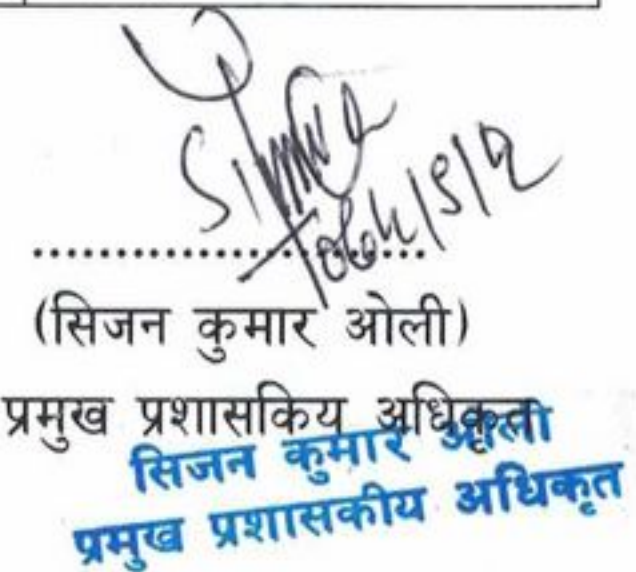 (सिजन कुमार ओली)
प्रमुख प्रशासकिय अधिकृत
सिजन कुमार ओली
प्रमुख प्रशासकीय अधिकृत